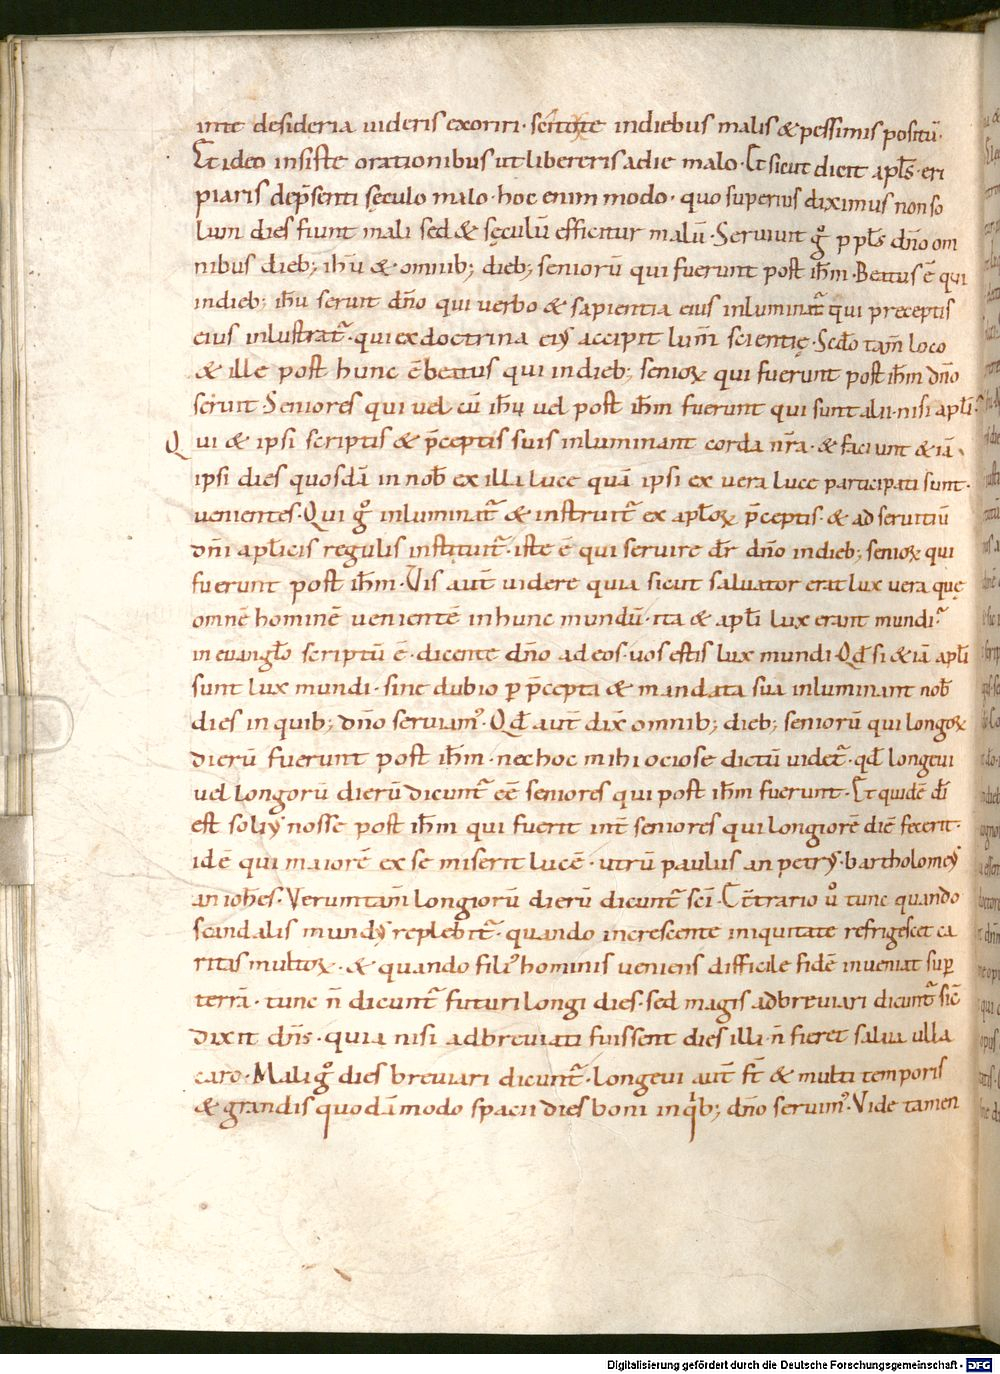 inte desideria uideris exoriri· scito te indiebus malis & pessimis positū·
Et ideo insiste orationibus ut libereris a die malo· Et sicut dicit apl̄s· eri
piaris dep̄senti sęculo malo· hoc enim modo· quo superius diximus non so
lum dies fiunt mali sed & sęculū efficitur malū· Seruiuit gͦ ppl̄s dn̄o om
nibus dieb; ih̄u & omnib; dieb; seniorū qui fuerunt post ih̄m· Beatus ē qui
indieb; ih̄u seruit dn̄o qui uerbo & sapientia eius inluminat᷑ qui preceptis
eius inlustrat᷑· qui exdoctrina eiꝰ accipit lum̄ scientię· Scd̄o tam̄ loco
& ille post hunc ē beatus qui indieb; senioꝝ qui fuerunt post ih̄m dn̄o
seruit· Seniores qui uel cū ih̄u uel post ih̄m fuerunt qui sunt alii· nisi apl̄i?
Qui & ipsi scriptis & p̄ceptis suis inluminant corda nr̄a· & faciunt & iā
ipsi dies quosdā in nob̄ ex illa luce quā ipsi ex uera luce participati sunt·
uenientes· Qui gͦ inluminat᷑ & instruit᷑ ex apl̄oꝝ p̄ceptis· & ad seruitiū
dn̄i apl̄icis regulis instituit᷑· iste ē qui seruire dr̄ dn̄o indieb; senioꝝ qui
fuerunt post ih̄m· Vis aut̄ uidere quia sicut saluator erat lux uera quę
omnē hominē uenientē inhunc mundū· ita & apl̄i lux erant mundi?
in euangl̄o scriptū ē· dicente dn̄o ad eos· uos estis lux mundi· Qd̄ si & iā apl̄i
sunt lux mundi· sine dubio ꝑ p̄cepta & mandata sua inluminant nob̄
dies in quib; dn̄o seruiamꝰ· Qd̄ aut̄ dix̄ omnib; dieb; seniorū qui longoꝝ
dierū fuerunt post ih̄m· nec hoc mihi ociose dictū uidet᷑· qd̄ longeui
uel longorū dierū dicunt᷑ eē seniores qui post ih̄m fuerunt· Et quidē dī
est soliꝰ nosse post ih̄m qui fuerit int̄ seniores qui longiorē diē fecerit·
idē qui maiorē ex se miserit lucē· utrū paulus an petrꝰ· bartholomeꝰ
an ioh̄es· Verumtam̄ longiorū dierū dicunt᷑ sc̄i· Cōtrario uͦ tunc quando
scandalis mundꝰ replebit᷑· quando increscente iniquitate refrigescet ca
ritas multoꝝ· & quando filiꝰ hominis ueniens difficile fidē inueniat suꝑ
terrā· tunc n̄ dicunt᷑ futuri longi dies· sed magis adbreuiari dicunt᷑ sic̄
dixit dn̄s· quia nisi adbreuiati fuissent dies illi· n̄ fieret salua ulla
caro· Mali gͦ dies breuiari dicunt᷑· Longeui aut̄ st̄ & multi temporis
& grandis quodā modo spacii dies boni inq̍b; dn̄o seruimꝰ· Vide tamen
Digitalisierung gefördert durch die Deutsche Forschungsgemeinschaft - DFG